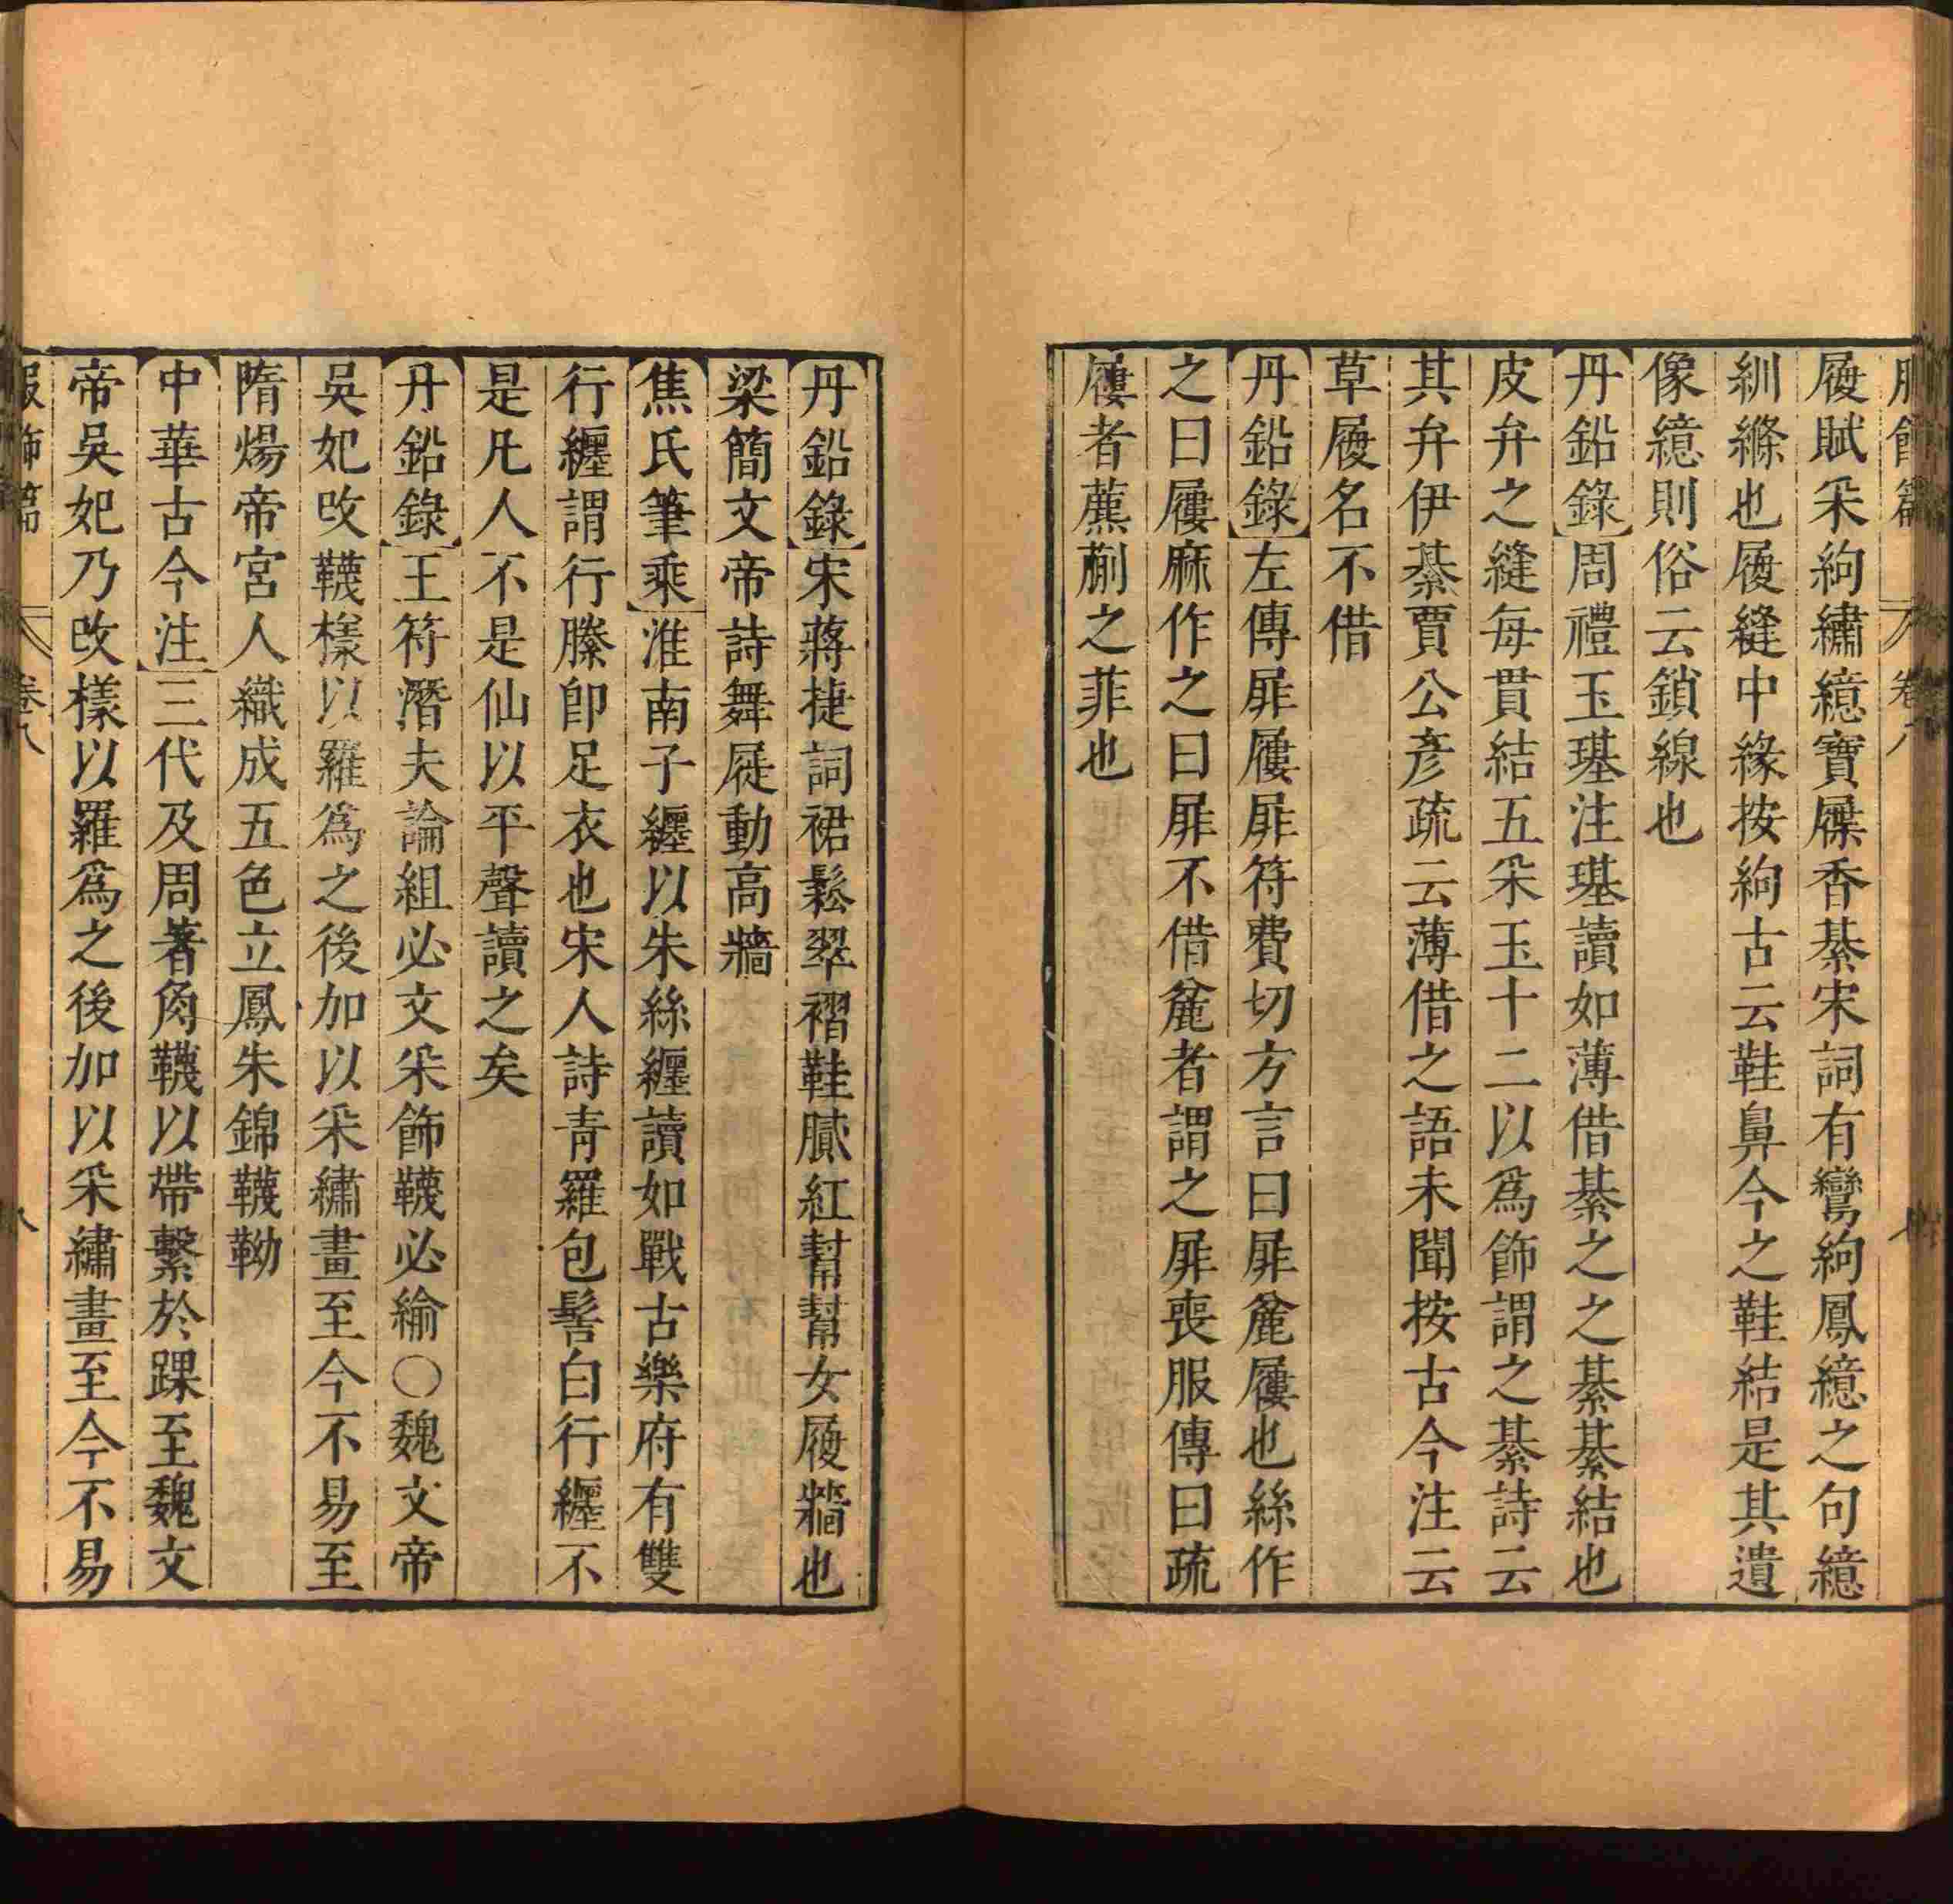 服飾篇 卷八
履賦采絇繡繶寶屧香綦宋詞有鸞絇鳳繶之句繶
紃絛也履縫中緣按絇古云鞋鼻今之鞋結是其遺
像繶則俗云鎖線也
丹鉛錄 周禮玉璂注璂讀如薄借綦之之綦綦結也
皮弁之縫每貫結五采玉十二以爲飾謂之綦詩云
其弁伊綦賈公彥疏云薄借之語未聞按古今注云
草履名不借
丹鉛錄 左傳屝屨屝符費切方言曰屝麄屨也絲作
之曰屨麻作之曰屝不借麄者謂之屝喪服傳曰疏
屨者藨蒯之菲也
丹鉛錄 宋蔣捷詞裙鬆翠褶鞋膩紅幫幫女履牆也
梁簡文帝詩舞屣動高牆
焦氏筆乘 淮南子纏以朱絲纏讀如戰古樂府有雙
行纏謂行縢卽足衣也宋人詩青羅包髻白行纏不
是凡人不是仙以平聲讀之矣
丹鉛錄 王符潛夫論組必文采飾韈必緰○魏文帝
吳妃改韈樣以羅爲之後加以采繡畫至今不易至
隋煬帝宮人織成五色立鳳朱錦韈靿
中華古今注 三代及周著角韈以帶繫於踝至魏文
帝吳妃乃改樣以羅爲之後加以采繡畫至今不易
服飾篇 卷八 八